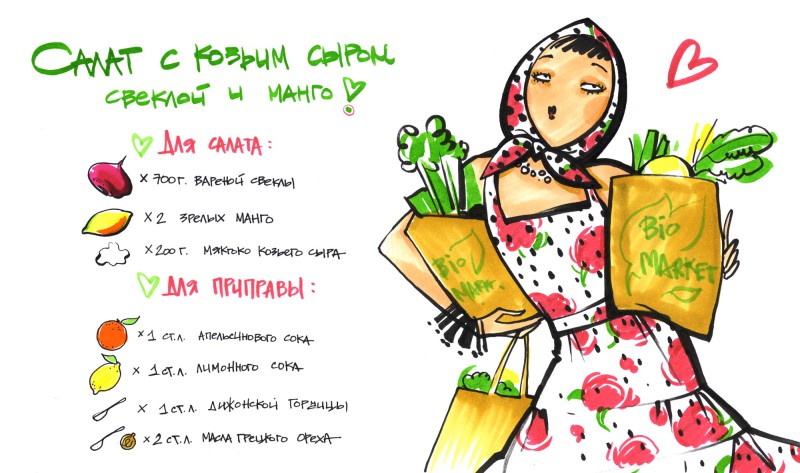 САЛАТ С КОЗЬИМ СЫРОМ
СВЕКЛОЙ И МАНГО!
ДЛЯ САЛАТА:
× 700 Г. ВАРЕНОЙ СВЕКЛЫ
× 2 ЗРЕЛЫХ МАНГО
× 200 Г. МЯГКОГО КОЗЬЕГО СЫРА
ДЛЯ ПРИПРАВЫ:
× 1 СТ.Л. АПЕЛЬСИНОВОГО СОКА
× 1 СТ.Л. ЛИМОННОГО СОКА
× 1 СТ.Л. ДИЖОНСКОЙ ГОРЧИЦЫ
× 2 СТ.Л. МАСЛА ГРЕЦКОГО ОРЕХА
BIO
MARK.
BIO
MARKET